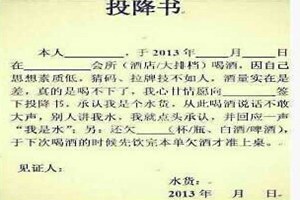 投降书
本人________，于 2013 年____月____日
在________会所（酒店/大排档）喝酒，因自己
思想素质低，猜码、拉牌技不如人，酒量实在是
差，真的是喝不下了，我心甘情愿向________签
下投降书，承认我是个水货，从此喝酒说话不敢
大声，别人讲我水，我就点头承认，并回应一声
“我是水”；另：还欠____（杯/瓶、白酒/啤酒），
于下次喝酒的时候先饮完本单欠酒才准上桌。
见证人：
水货：________
2013 年 月 日